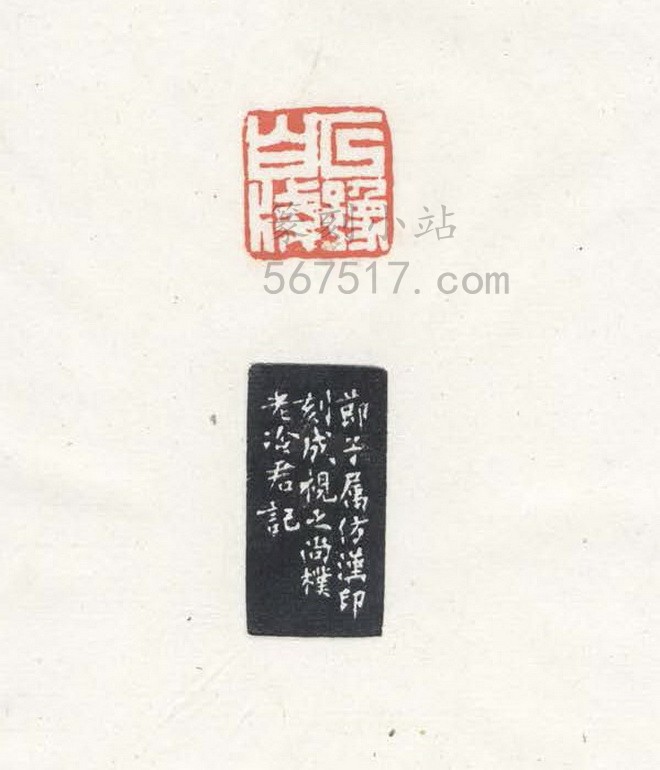 篆刻小站
567517.com
節子属仿漢印
刻成視之尚樸
老冷君記